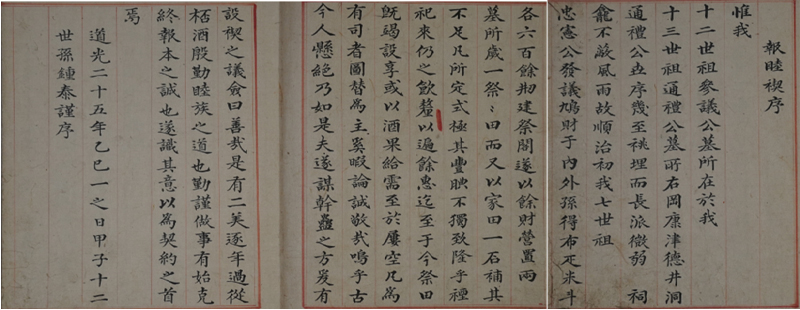 報睦禊序
惟我
十二世祖參議公墓所在於我
十三世祖通禮公墓所右岡康津德井洞
通禮公世序幾至祧埋而長派微弱 祠
龕不蔽風雨故順治初我七世祖
忠憲公發議鳩財于內外孫得布疋米斗
各六百餘刱建祭閣遂以餘財營置兩
墓所歲一祭祭田而又以家田一石補其
不足凡所定式極其豐腆不獨致隆乎禋
祀來仍之飮釐以遍餘惠迄至于今祭田
旣竭設享或以酒果給需至於屢空凡爲
有司者圖替爲主奚暇論誠敬哉嗚乎古
今人懸絶乃如是夫遂謀幹蠱之方爰有
設禊之議僉曰善哉是有二美逐年過從
桮酒殷勤睦族之道也勤謹做事有始克
終報本之誠也遂識其意以爲契約之首
焉
道光二十五年乙巳一之日甲子十二
世孫鍾泰謹序